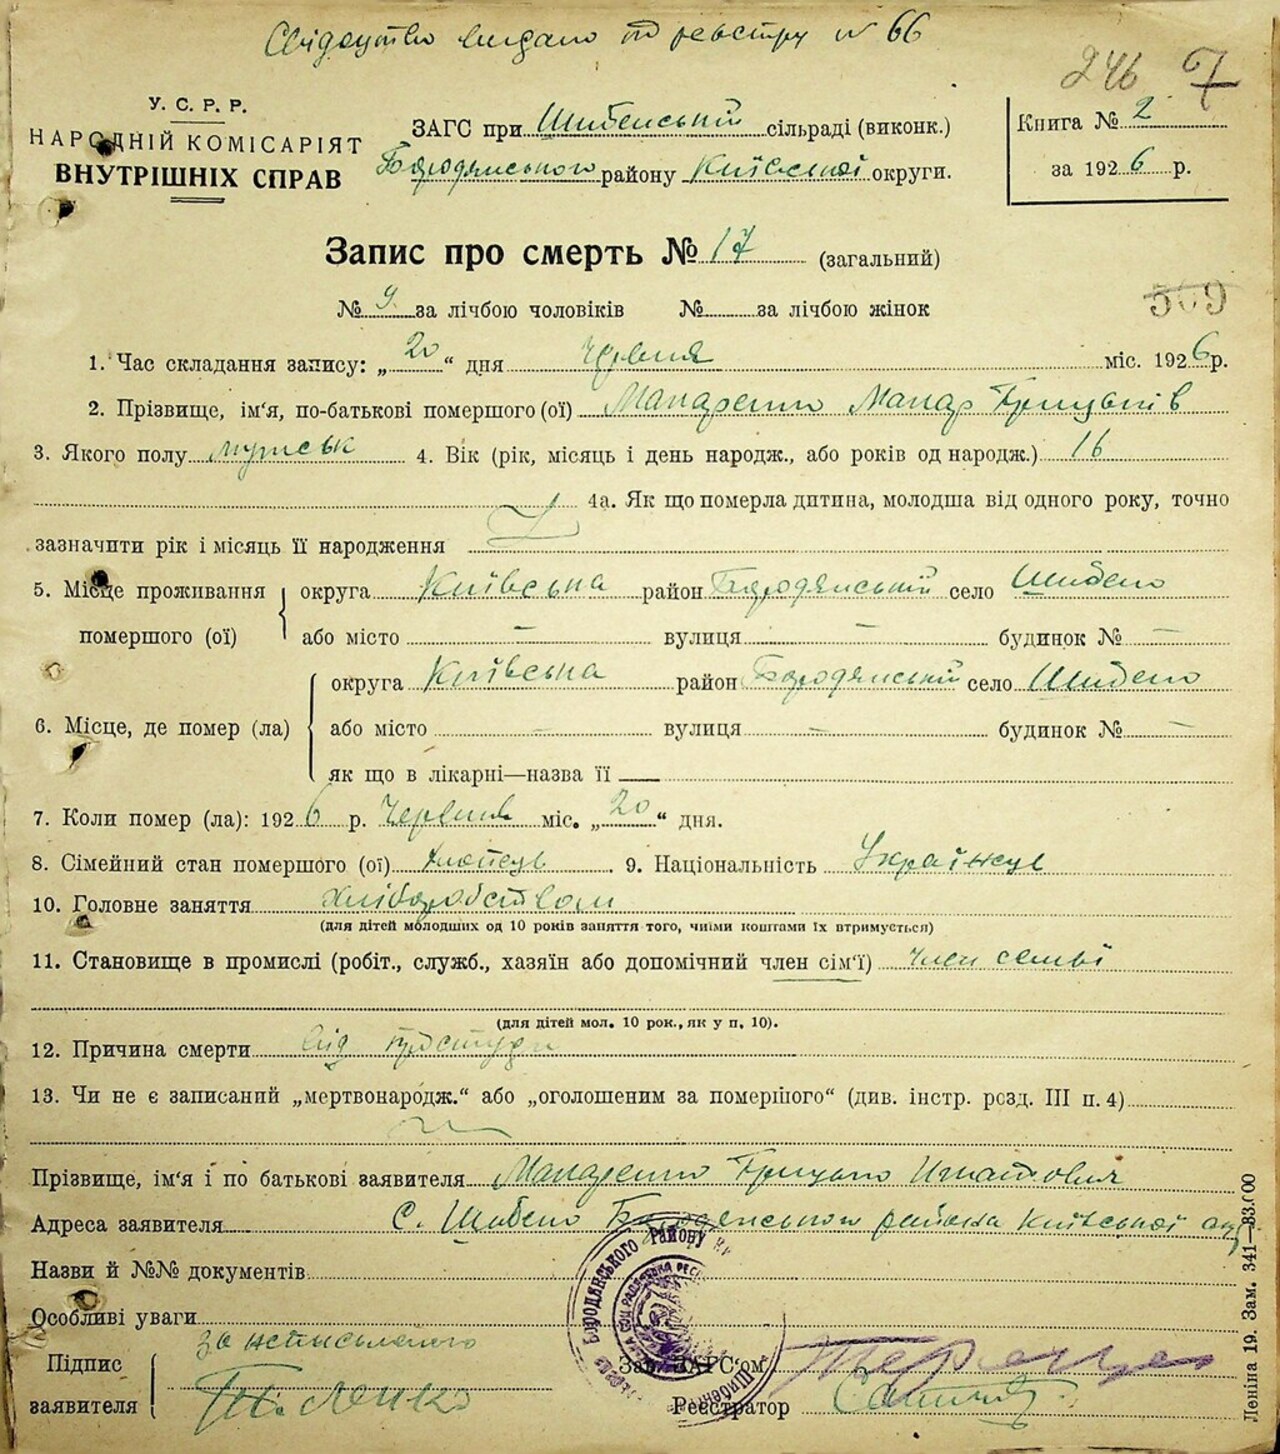 Свідоцтво видано по реєстру № 66
246 67
У. С. Р. Р.
НАРОДНІЙ КОМІСАРІЯТ
ВНУТРІШНІХ СПРАВ
ЗАГС при Шибенській сільраді (виконк.)
Бородянського району Київської округи.
Книга № 2
за 1926 р.
Запис про смерть № 17 (загальний)
№ 9 за лічбою чоловіків № за лічбою жінок
509
1. Час складання запису: „20“ дня червня міс. 1926 р.
2. Прізвище, ім‘я, по-батькові помершого (ої) Макаренко Макар Грицьків
3. Якого полу мужеськ 4. Вік (рік, місяць і день народж., або років од народж.) 16
4а. Як що померла дитина, молодша від одного року, точно
зазначити рік і місяць її народження
5. Місце проживання помершого (ої)
округа Київська район Бородянській село Шибено
або місто — вулиця — будинок № —
6. Місце, де помер (ла)
округа Київська район Бородянській село Шибено
або місто — вулиця — будинок № —
як що в лікарні—назва її
7. Коли помер (ла): 1926 р. Червня міс. „20“ дня.
8. Сімейний стан помершого (ої) хлопець 9. Національність Українець
10. Головне заняття хліборобством
(для дітей молодших од 10 років заняття того, чиїми коштами їх втримується)
11. Становище в промислі (робіт., служб., хазяїн або допомічний член сім‘ї) член семьї
(для дітей мол. 10 рок., як у п. 10).
12. Причина смерти від простуди
13. Чи не є записаний „мертвонародж.“ або „оголошеним за помершого“ (див. інстр. розд. III п. 4)
Прізвище, ім‘я і по батькові заявителя Макаренко Грицько Игнатович
Адреса заявителя С. Шибено Бородянського района Київської окр
Назви й №№ документів
Особливі уваги
Підпис заявителя
за неписьменого
Зав. ЗАГС‘ом
Реєстратор
Бородянського Району
Леніна 19. Зам. 341—83.000